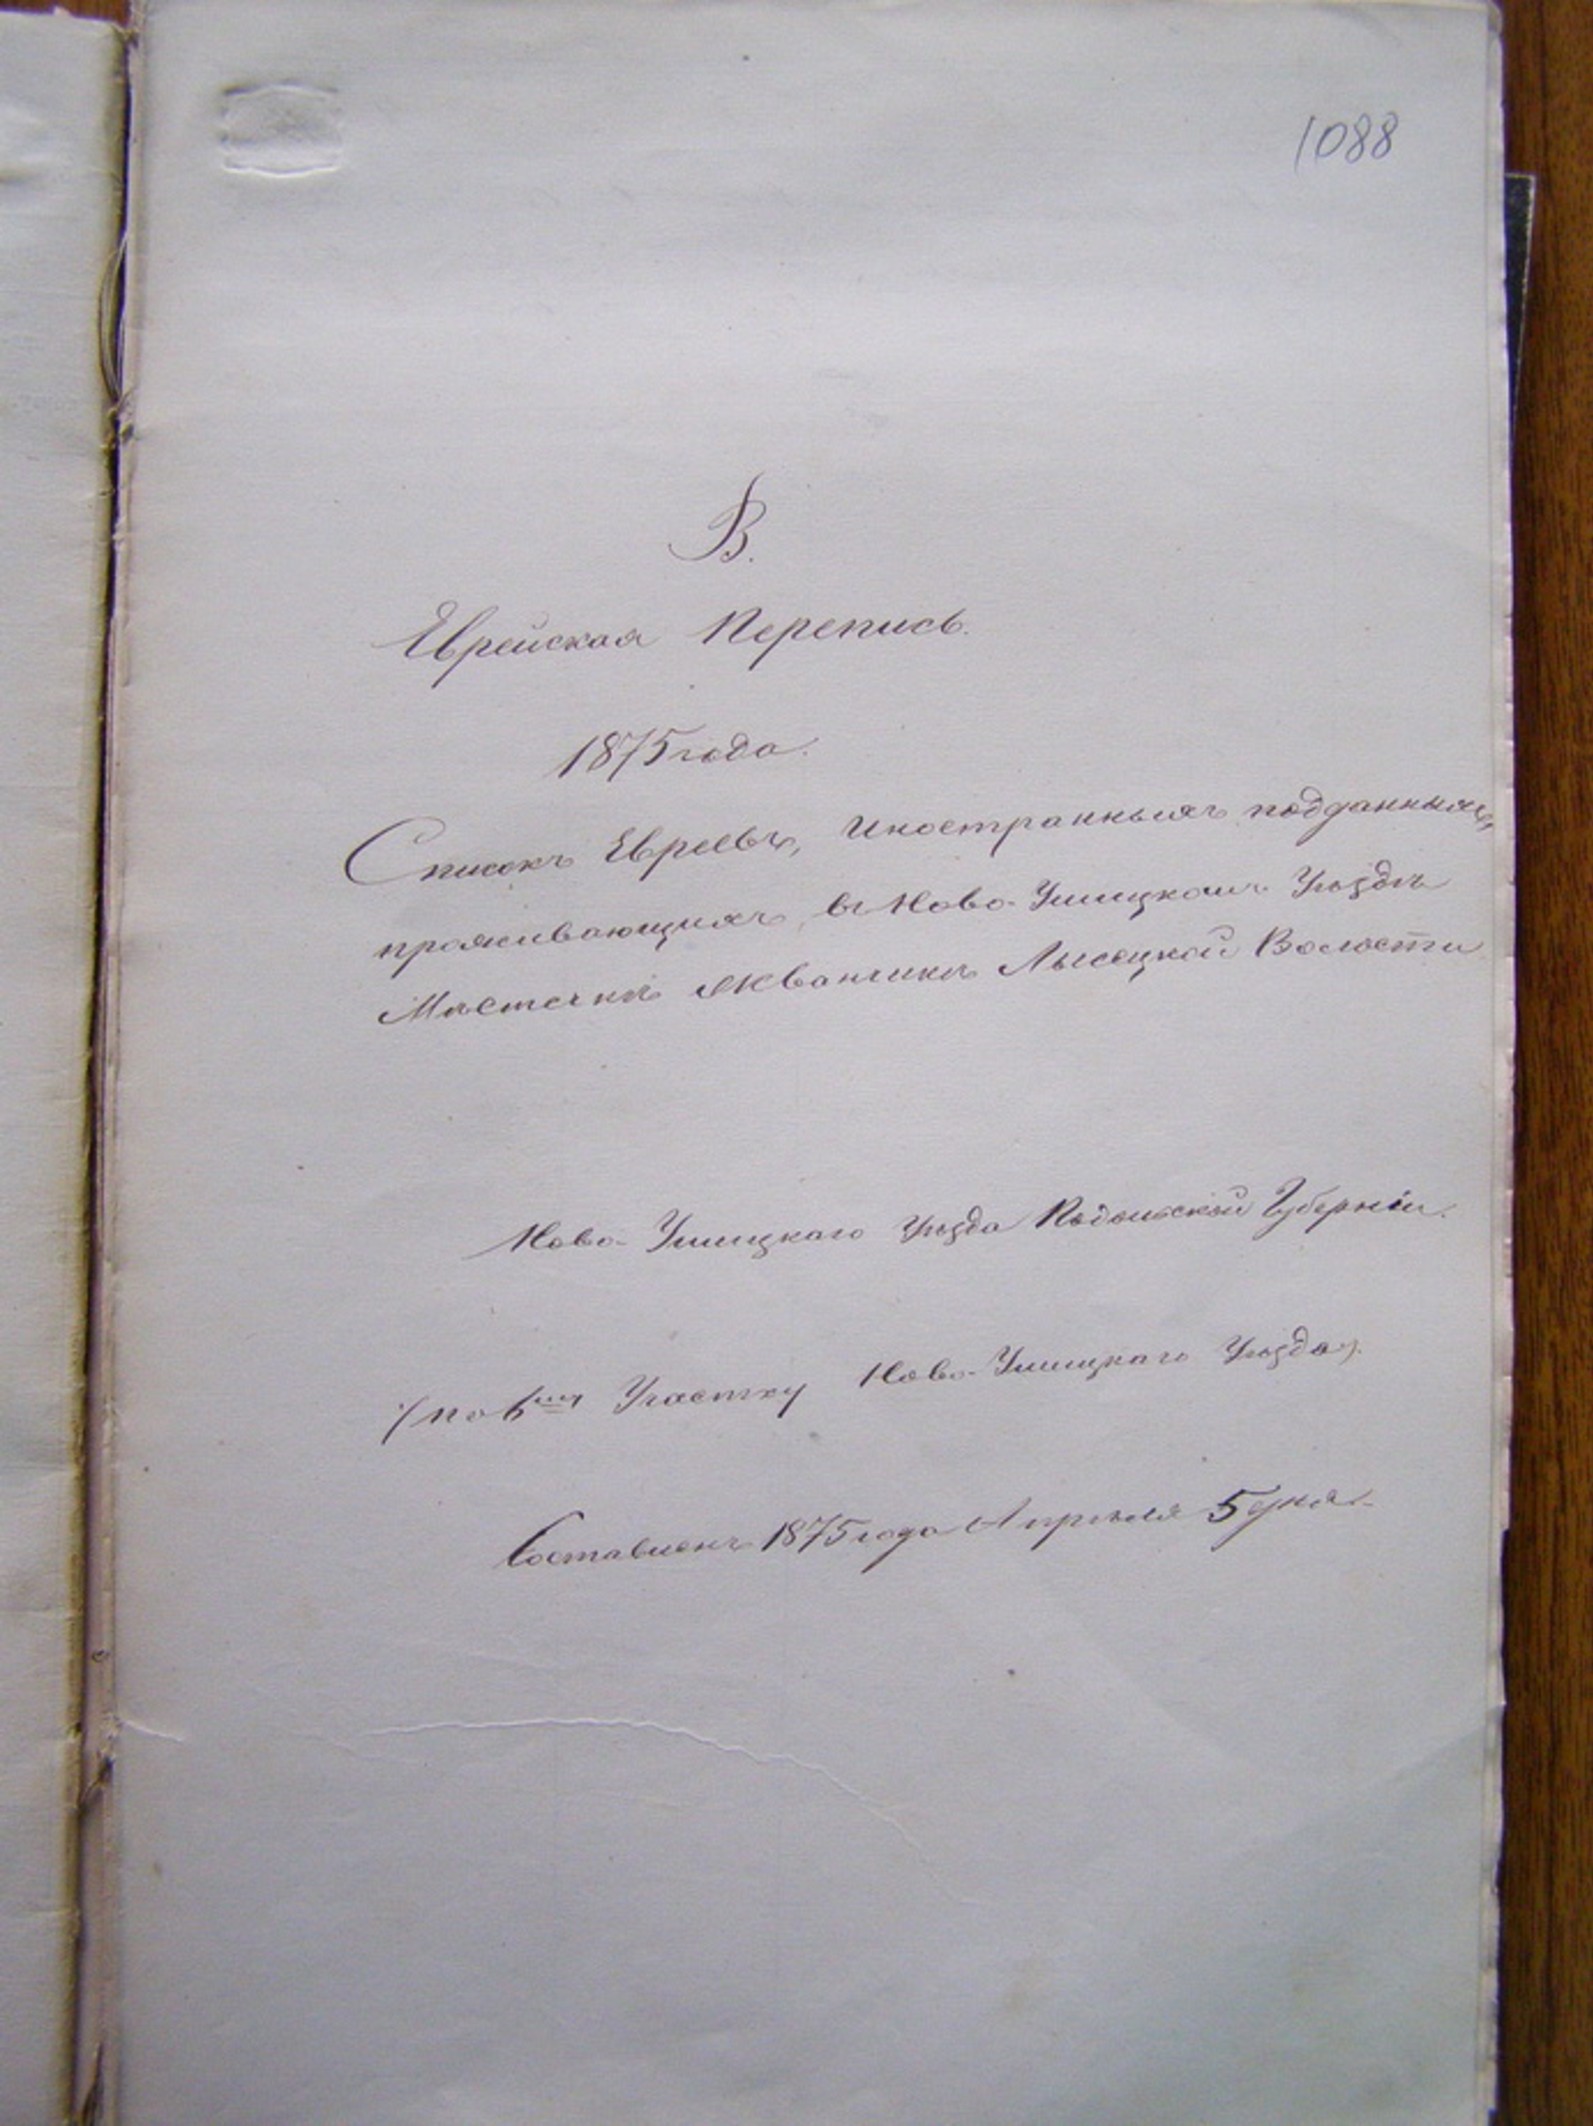 1088
В.
Еврейская Перепись.
1875 года.
Списокъ Евреевъ, Иностранныхъ подданныхъ,
проживающихъ, въ Ново-Ушицкомъ Уѣздѣ
Мѣстечкѣ Жванчикѣ Лысецкой Волости
Ново-Ушицкаго Уѣзда Подольской Губерніи.
/по 6му Участку Ново-Ушицкаго Уѣзда/.
Составленъ 1875 года Апрѣля 5 дня.